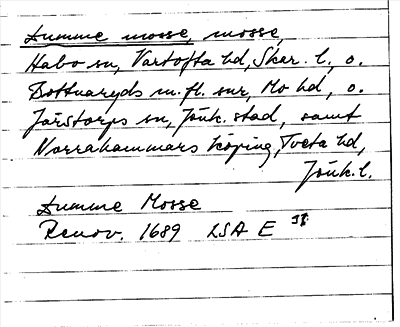 Dumme mosse, mosse,
Habo sn, Vartofta hd, Skar. l., o.
Bottnaryds m. fl. snr, Mo hd, o.
Järstorps sn, Jönk. stad, samt
Norrahammars köping, Tveta hd,
Jönk. l.
Dumme Mosse
Renov. 1689 LSA E